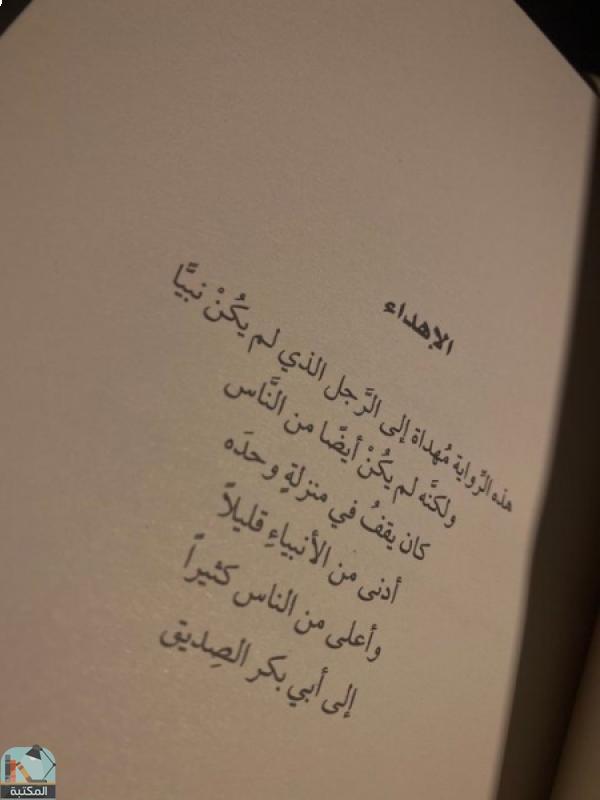 الإهداء
هذه الرِّواية مُهداة إلى الرَّجل الذي لم يكُنْ نبيًّا
ولكنَّه لم يكُنْ أيضًا من النَّاس
كان يقفُ في منزلةٍ وحدَه
أدنى من الأنبياءِ قليلاً
وأعلى من الناس كثيراً
إلى أبي بكر الصِديق
المكتبة